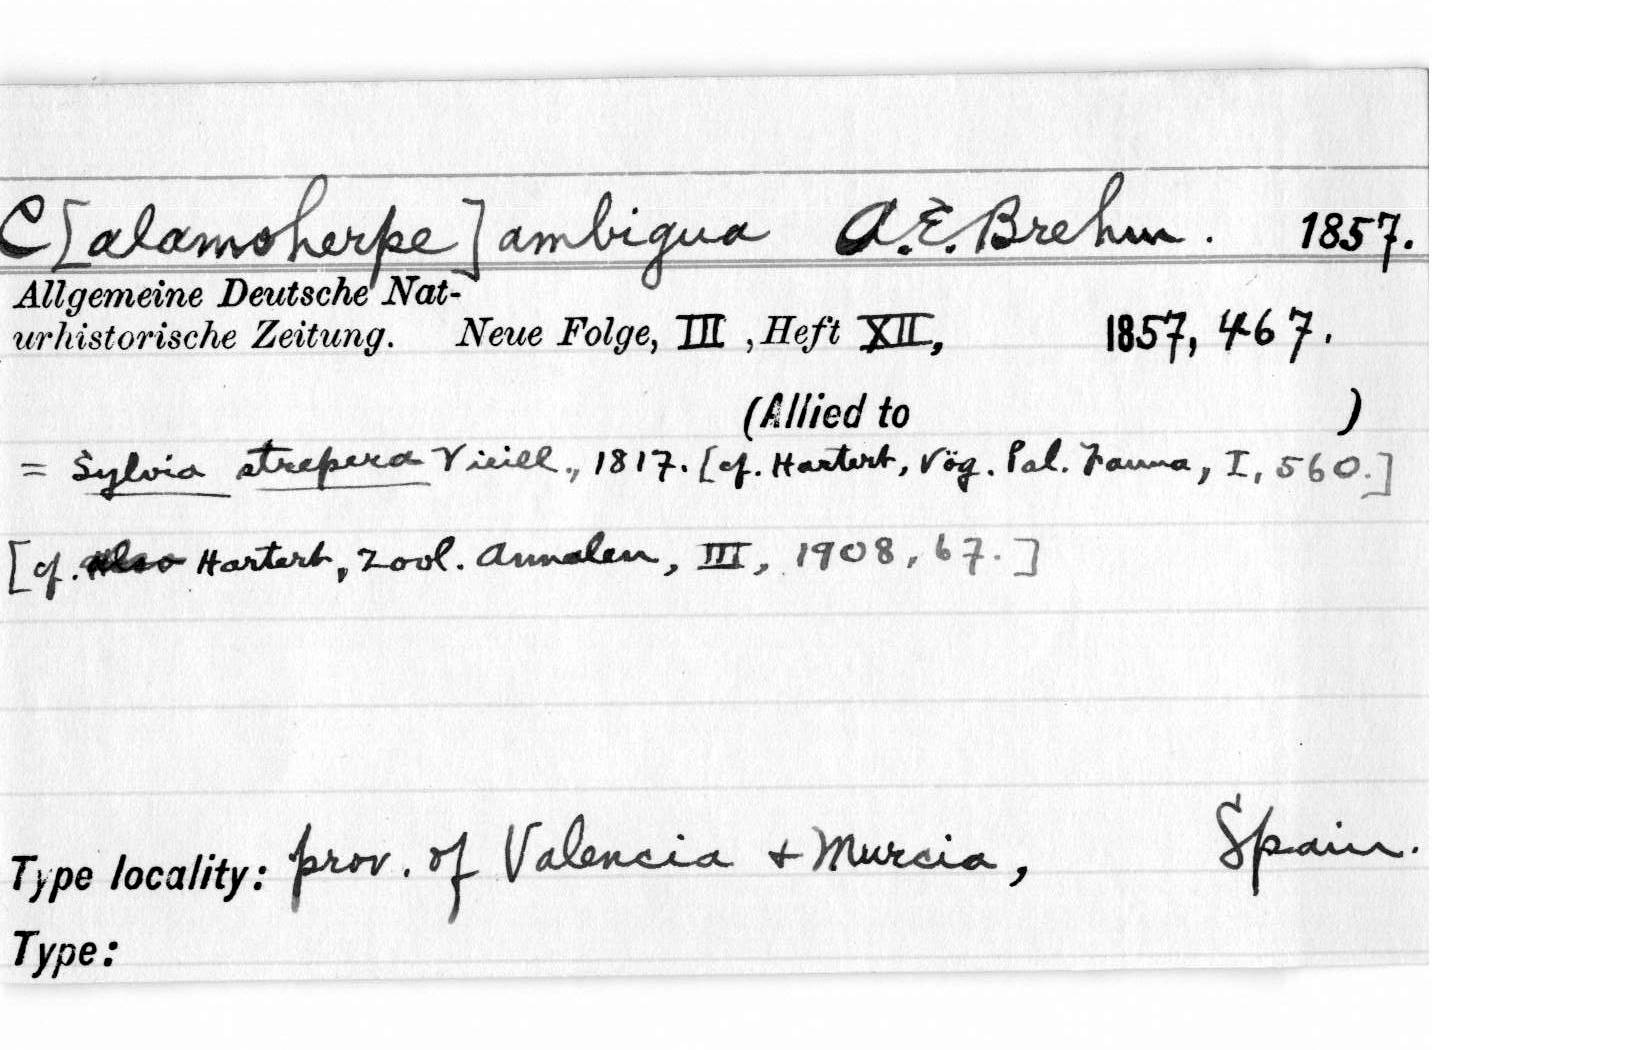 C[alamoherpe] ambigua A.E. Brehm. 1857.
Allgemeine Deutsche Nat-
urhistorische Zeitung. Neue Folge, III, Heft XII, 1857, 467.
(Allied to )
= Sylvia strepera Vieill., 1817. [cf. Hartert, Vög. Pal. Fauna, I, 560.]
[cf. also Hartert, Zool. Annalen, III, 1908, 67.]
Type locality: prov. of Valencia + Murcia, Spain.
Type: